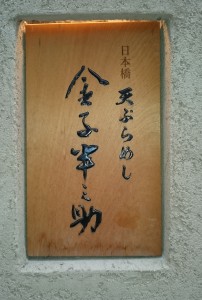 日本橋
天ぷらめし
金子半之助